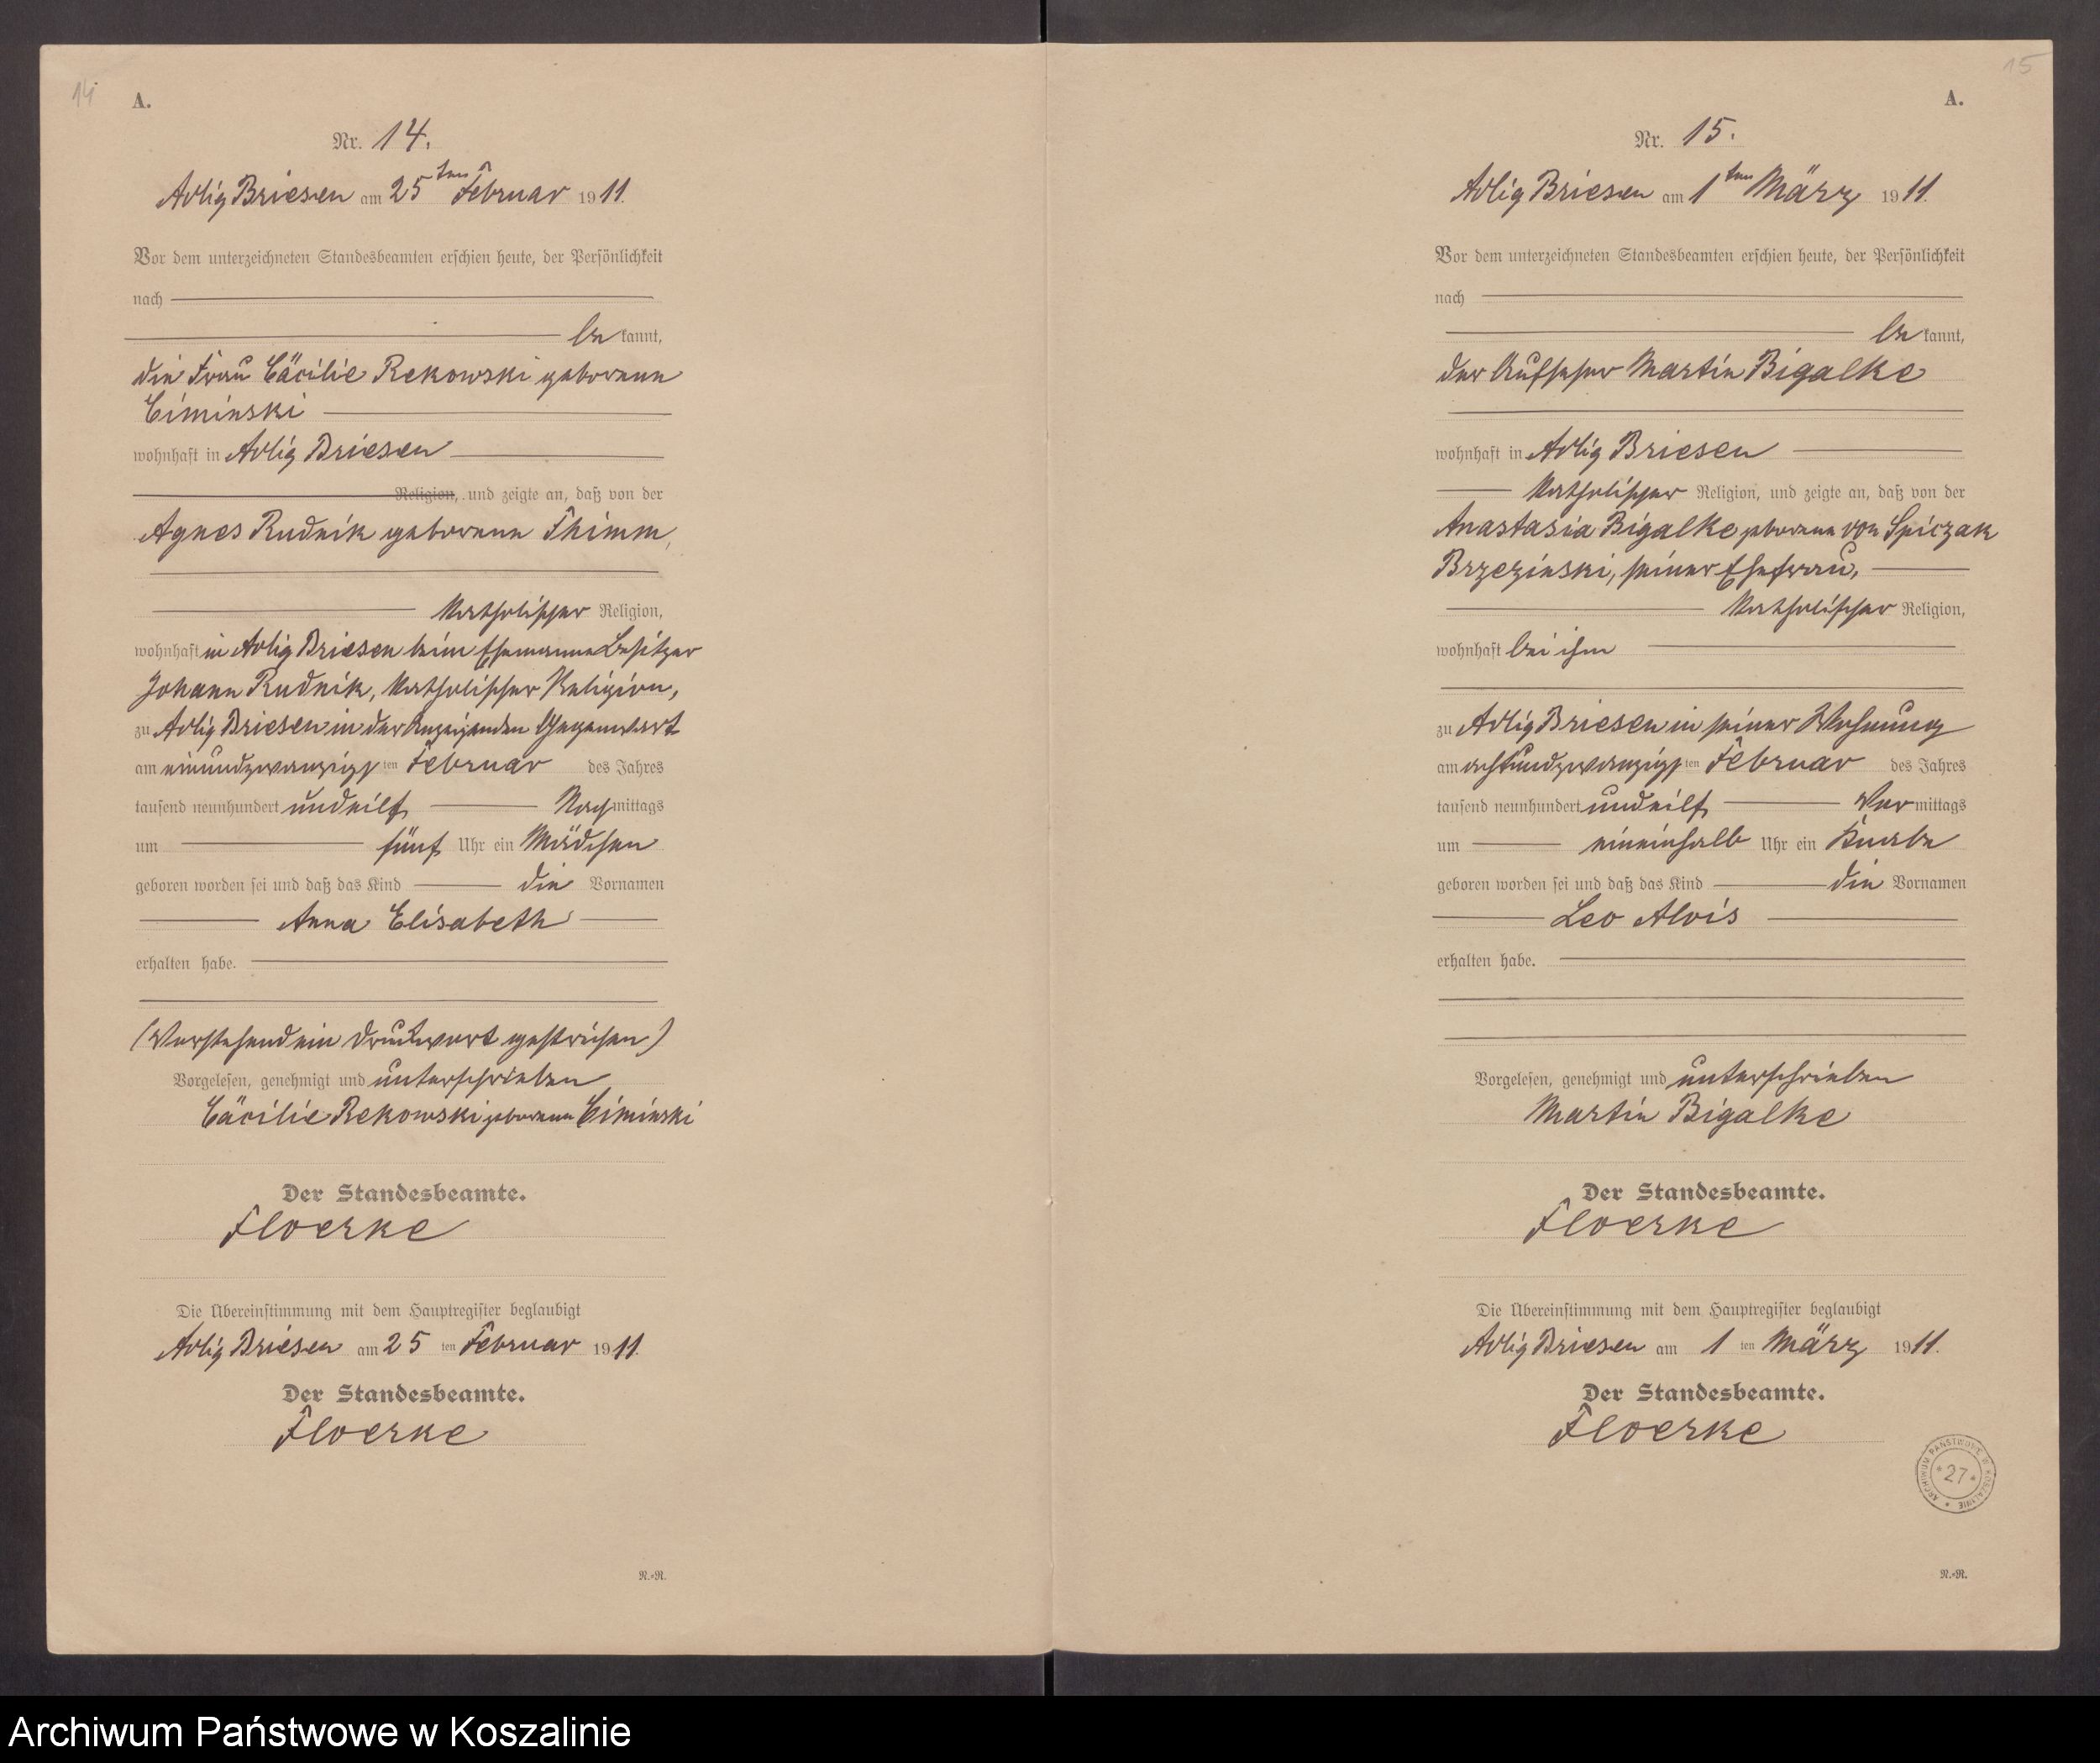 14
A.
Nr. 14.
Adlig Briesen am 25ten Februar 1911.
Vor dem unterzeichneten Standesbeamten erschien heute, der Persönlichkeit
nach
be kannt,
die Frau Cäcilie Rekowski geborene
Ciminski
wohnhaft in Adlig Briesen
Religion, und zeigte an, daß von der
Agnes Rudnik geborene Thimm,
katholischer Religion,
wohnhaft in Adlig Briesen beim Ehemanne Besitzer
Johann Rudnik, katholischer Religion,
zu Adlig Briesen in der Anzeigenden Gegenwart
am einundzwanzigsten Februar des Jahres
tausend neunhundert und eilf Nachmittags
um fünf Uhr ein Mädchen
geboren worden sei und daß das Kind die Vornamen
Anna Elisabeth
erhalten habe.
(Vorstehend ein Druckwort gestrichen)
Vorgelesen, genehmigt und unterschrieben
Cäcilie Rekowski geborene Ciminski
Der Standesbeamte.
Floerke
Die Übereinstimmung mit dem Hauptregister beglaubigt
Adlig Briesen am 25 ten Februar 1911.
Der Standesbeamte.
Floerke
N.-N.
15
A.
Nr. 15.
Adlig Briesen am 1ten März 1911.
Vor dem unterzeichneten Standesbeamten erschien heute, der Persönlichkeit
nach
be kannt,
der Aufseher Martin Bigalke
wohnhaft in Adlig Briesen
katholischer Religion, und zeigte an, daß von der
Anastasia Bigalke geborene von Spiczak
Brzezinski, seiner Ehefrau,
katholischer Religion,
wohnhaft bei ihm
zu Adlig Briesen in seiner Wohnung
am achtundzwanzigsten Februar des Jahres
tausend neunhundert und eilf Vormittags
um eineinhalb Uhr ein Knabe
geboren worden sei und daß das Kind die Vornamen
Leo Alois
erhalten habe.
Vorgelesen, genehmigt und unterschrieben
Martin Bigalke
Der Standesbeamte.
Floerke
Die Übereinstimmung mit dem Hauptregister beglaubigt
Adlig Briesen am 1 ten März 1911.
Der Standesbeamte.
Floerke
ARCHIWUM PAŃSTWOWE W KOSZALINIE
*27*
N.-N.
Archiwum Państwowe w Koszalinie